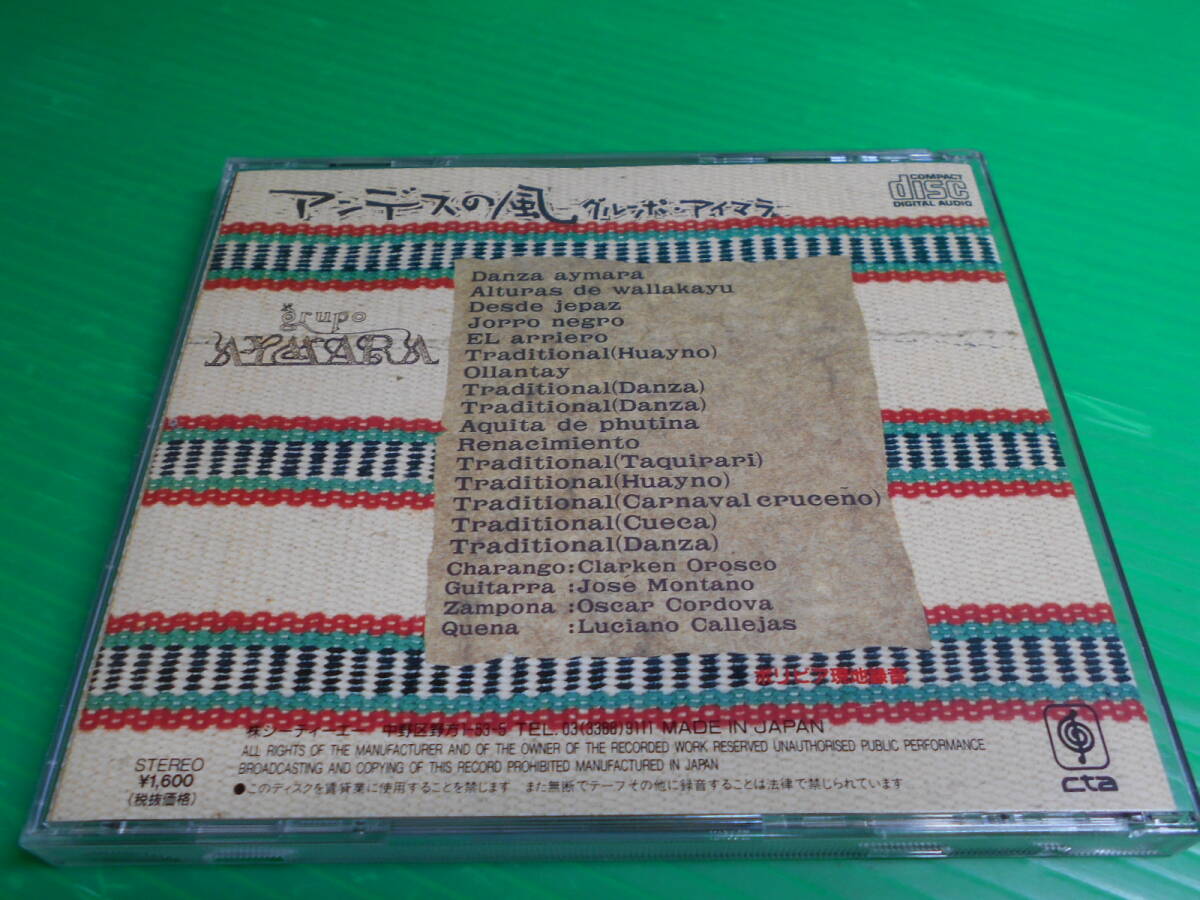 アンデスの風 グルッポ・アイマラ
COMPACT
disc
DIGITAL AUDIO
grupo
AYMARA
Danza aymara
Alturas de wallakayu
Desde jepaz
Jorro negro
EL arriero
Traditional(Huayno)
Ollantay
Traditional(Danza)
Traditional(Danza)
Aquita de phutina
Renacimiento
Traditional(Taquirari)
Traditional(Huayno)
Traditional(Carnaval cruceño)
Traditional(Cueca)
Traditional(Danza)
Charango:Clarken Orosco
Guitarra :José Montaño
Zampona :Oscar Cordova
Quena :Luciano Callejas
ボリビア現地録音
㈱シーティーエー 中野区野方1-53-5 TEL. 03(3388)9111 MADE IN JAPAN
ALL RIGHTS OF THE MANUFACTURER AND OF THE OWNER OF THE RECORDED WORK RESERVED UNAUTHORISED PUBLIC PERFORMANCE
BROADCASTING AND COPYING OF THIS RECORD PROHIBITED MANUFACTURED IN JAPAN
●このディスクを賃貸業に使用することを禁じます また無断でテープその他に録音することは法律で禁じられています
STEREO
¥1,600
(税抜価格)
cta